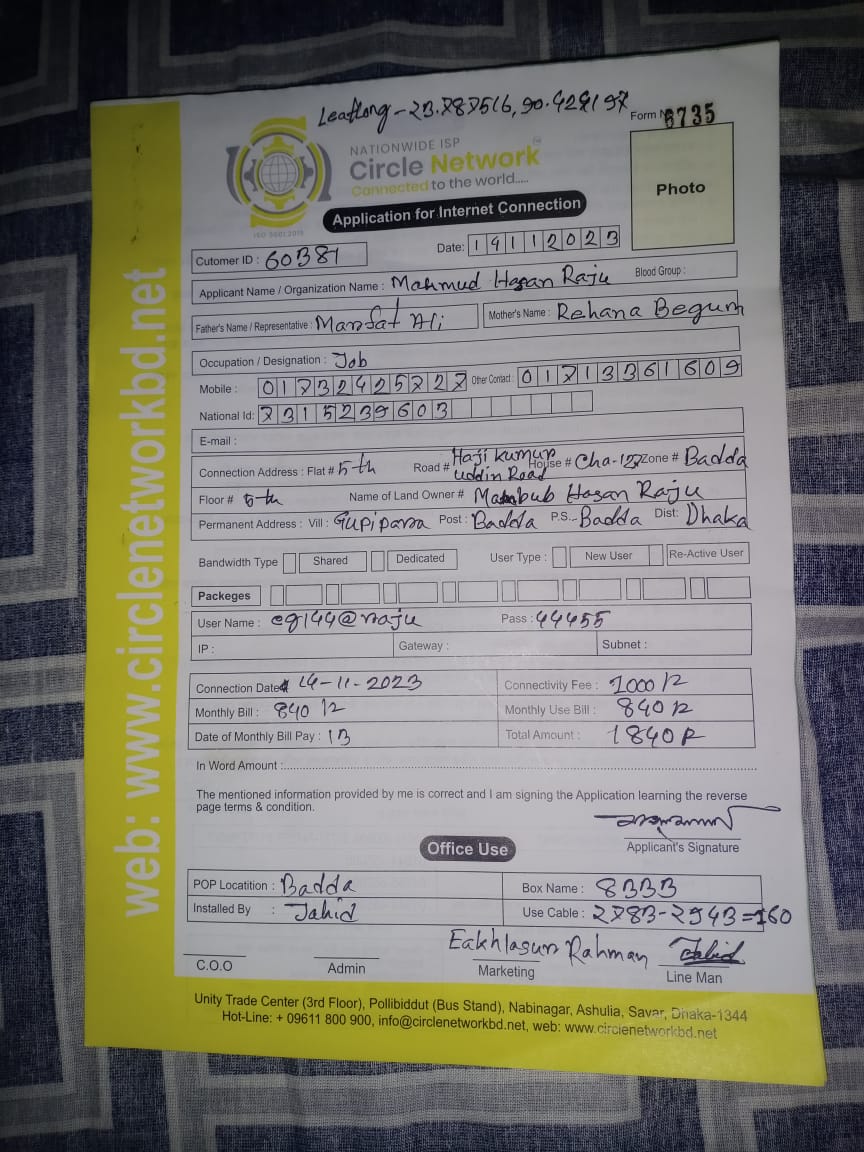 Leatlong - 23.787516, 90.429197
Form N 6735
NATIONWIDE ISP
Circle Network
Connected to the world.....
ISO 9001:2015
Photo
Application for Internet Connection
Cutomer ID : 60381
Date: 14112023
Applicant Name / Organization Name : Mahmud Hasan Raju Blood Group :
Father's Name / Representative : Mansat Ali Mother's Name : Rehana Begum
Occupation / Designation : Job
Mobile : 01732425727 Other Contact : 01713361609
National Id: 7315239603
E-mail :
Connection Address : Flat # 5th Road # Haji Kumur uddin Road House # Cha-127 Zone # Badda
Floor # 5th Name of Land Owner # Mahbub Hasan Raju
Permanent Address : Vill : Gupipara Post : Badda P.S.. Badda Dist: Dhaka
Bandwidth Type Shared Dedicated User Type : New User Re-Active User
Packeges
User Name : eg144@raju Pass : 44455
IP : Gateway : Subnet :
Connection Date 14-11-2023 Connectivity Fee : 1000/2
Monthly Bill : 840/2 Monthly Use Bill : 840/2
Date of Monthly Bill Pay : 13 Total Amount : 1840/2
In Word Amount :
The mentioned information provided by me is correct and I am signing the Application learning the reverse
page terms & condition.
Applicant's Signature
Office Use
POP Locatition : Badda Box Name : 8333
Installed By : Jahid Use Cable : 2783-2943=160
Eakhlasun Rahman Jahid
C.O.O Admin Marketing Line Man
Unity Trade Center (3rd Floor), Pollibiddut (Bus Stand), Nabinagar, Ashulia, Savar, Dhaka-1344
Hot-Line: + 09611 800 900, info@circlenetworkbd.net, web: www.circlenetworkbd.net
web: www.circlenetworkbd.net